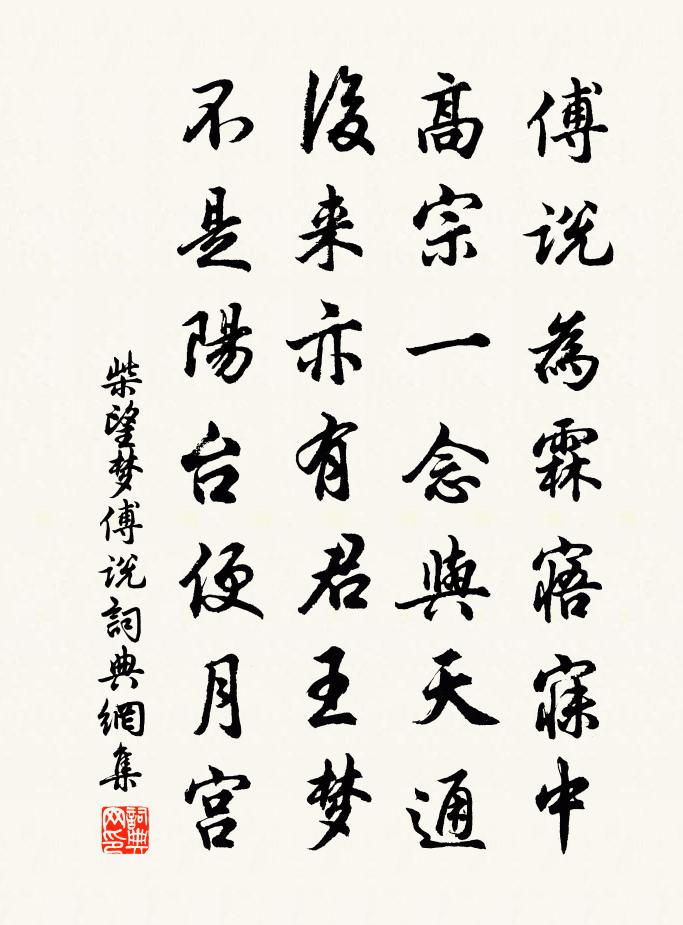 傅說為霖寤寐中
高宗一念與天通
後来亦有君王梦
不是陽台便月宫
柴望梦傅說詞典網集
詞典網印